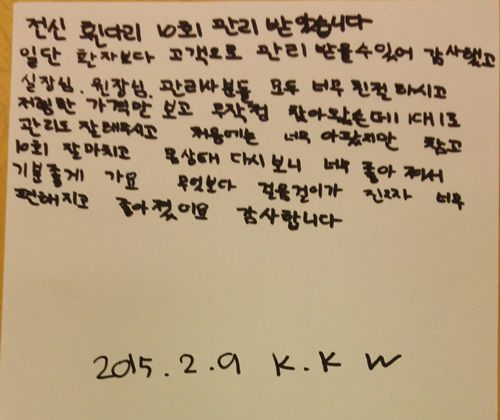 전신 휜다리 10회 관리 받았습니다
일단 환자보다 고객으로 관리 받을수있어 감사했고
실장님. 원장님. 관리사분들 모두 너무 친절하시고
저렴한 가격만 보고 무작정 찾아왔는데 1대1로
관리도 잘해주시고 처음에는 너무 아팠지만 참고
10회 잘마치고 몸상태 다시보니 너무 좋아 져서
기분좋게 가요 무엇보다 걸음걸이가 진짜 너무
편해지고 좋아졌어요 감사합니다
2015.2.9 K.K W